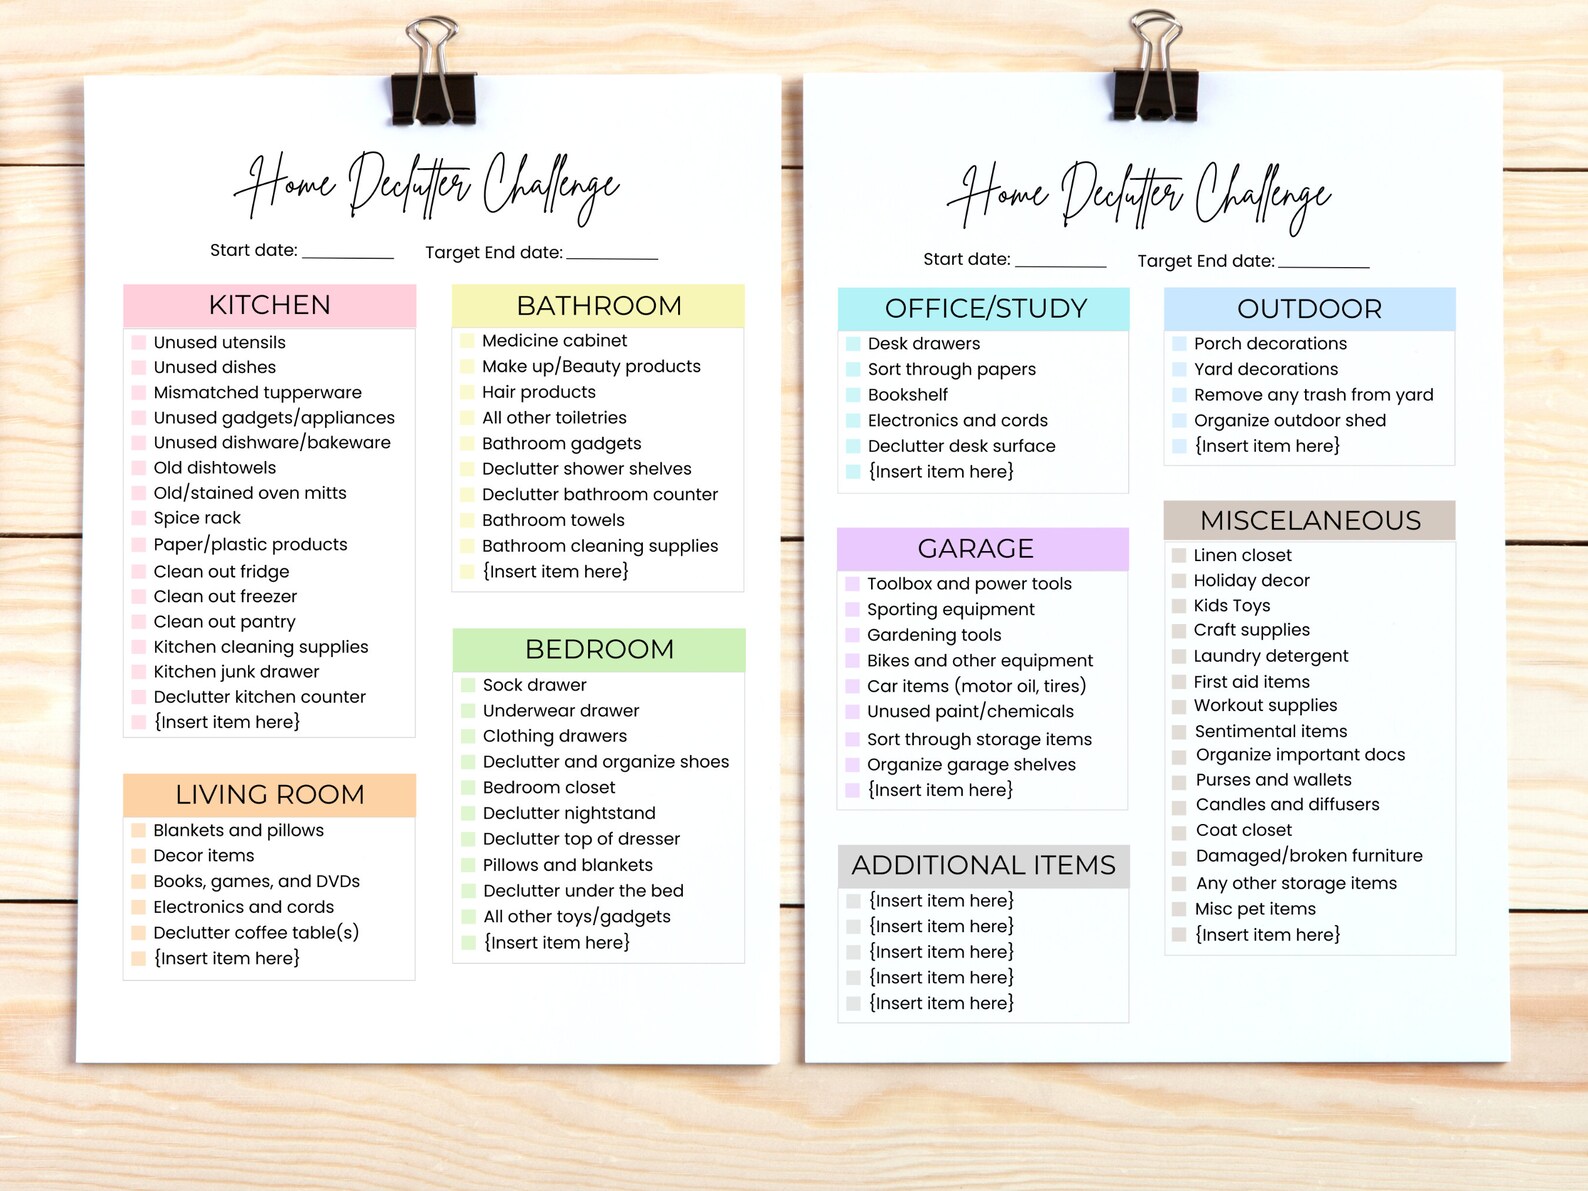 Home Declutter Challenge
Start date: __________ Target End date: __________
KITCHEN
Unused utensils
Unused dishes
Mismatched tupperware
Unused gadgets/appliances
Unused dishware/bakeware
Old dishtowels
Old/stained oven mitts
Spice rack
Paper/plastic products
Clean out fridge
Clean out freezer
Clean out pantry
Kitchen cleaning supplies
Kitchen junk drawer
Declutter kitchen counter
{Insert item here}
LIVING ROOM
Blankets and pillows
Decor items
Books, games, and DVDs
Electronics and cords
Declutter coffee table(s)
{Insert item here}
BATHROOM
Medicine cabinet
Make up/Beauty products
Hair products
All other toiletries
Bathroom gadgets
Declutter shower shelves
Declutter bathroom counter
Bathroom towels
Bathroom cleaning supplies
{Insert item here}
BEDROOM
Sock drawer
Underwear drawer
Clothing drawers
Declutter and organize shoes
Bedroom closet
Declutter nightstand
Declutter top of dresser
Pillows and blankets
Declutter under the bed
All other toys/gadgets
{Insert item here}
Home Declutter Challenge
Start date: __________ Target End date: __________
OFFICE/STUDY
Desk drawers
Sort through papers
Bookshelf
Electronics and cords
Declutter desk surface
{Insert item here}
GARAGE
Toolbox and power tools
Sporting equipment
Gardening tools
Bikes and other equipment
Car items (motor oil, tires)
Unused paint/chemicals
Sort through storage items
Organize garage shelves
{Insert item here}
ADDITIONAL ITEMS
{Insert item here}
{Insert item here}
{Insert item here}
{Insert item here}
{Insert item here}
OUTDOOR
Porch decorations
Yard decorations
Remove any trash from yard
Organize outdoor shed
{Insert item here}
MISCELANEOUS
Linen closet
Holiday decor
Kids Toys
Craft supplies
Laundry detergent
First aid items
Workout supplies
Sentimental items
Organize important docs
Purses and wallets
Candles and diffusers
Coat closet
Damaged/broken furniture
Any other storage items
Misc pet items
{Insert item here}